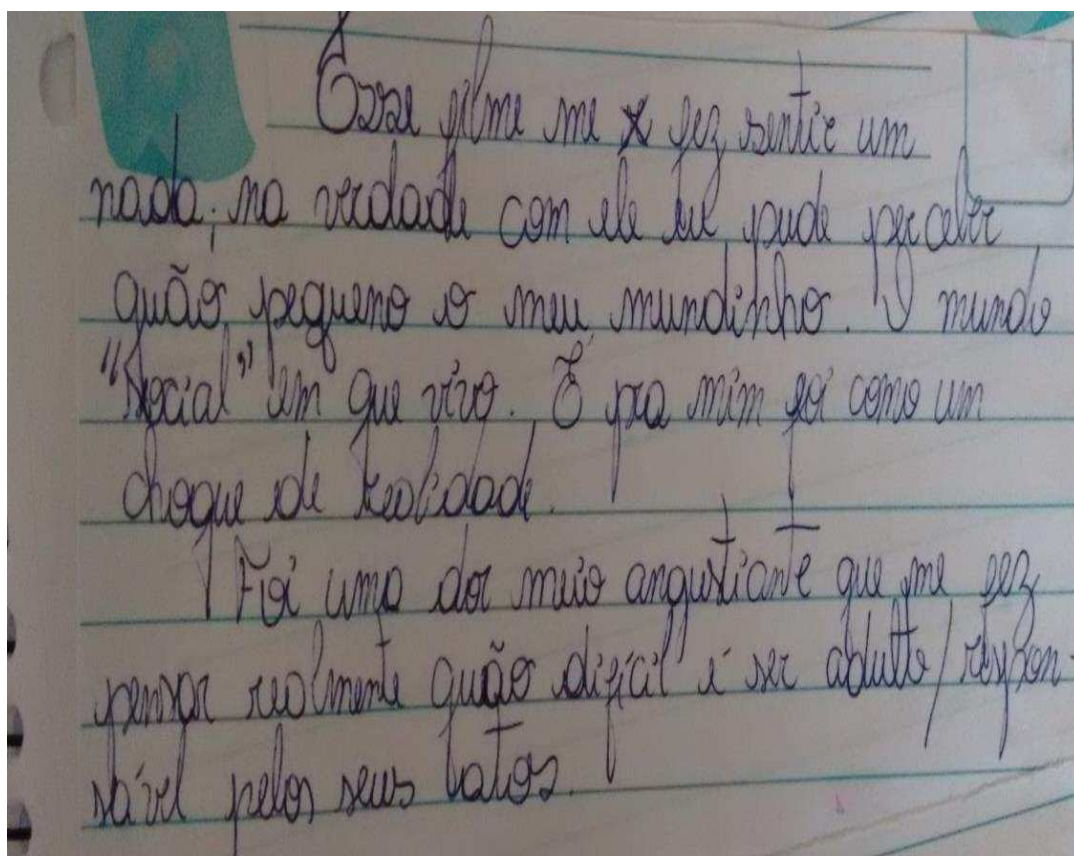 Esse filme me fez sentir um
nada; na verdade com ele eu pude perceber
quão pequeno o meu mundinho. O mundo
"social" em que vivo. E pra mim foi como um
choque de realidade.
Foi uma dor meio angustiante que me fez
pensar realmente quão difícil é ser adulto/respon-
sável pelos seus atos.